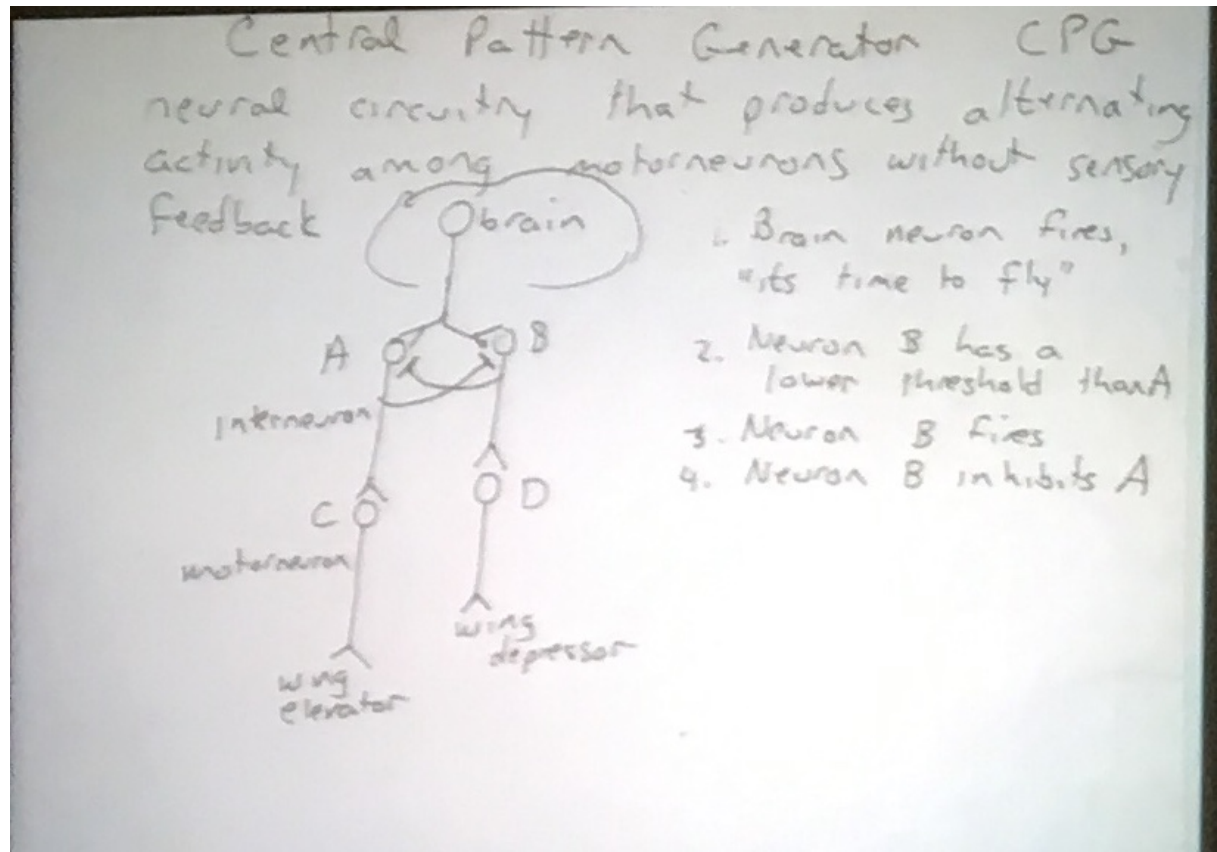 Central Pattern Generator CPG
neural circuitry that produces alternating
activity among motorneurons without sensory
feedback
brain
A
B
interneuron
C
D
motorneuron
wing
elevator
wing
depressor
1. Brain neuron fires,
"its time to fly"
2. Neuron B has a
lower threshold than A
3. Neuron B fires
4. Neuron B inhibits A